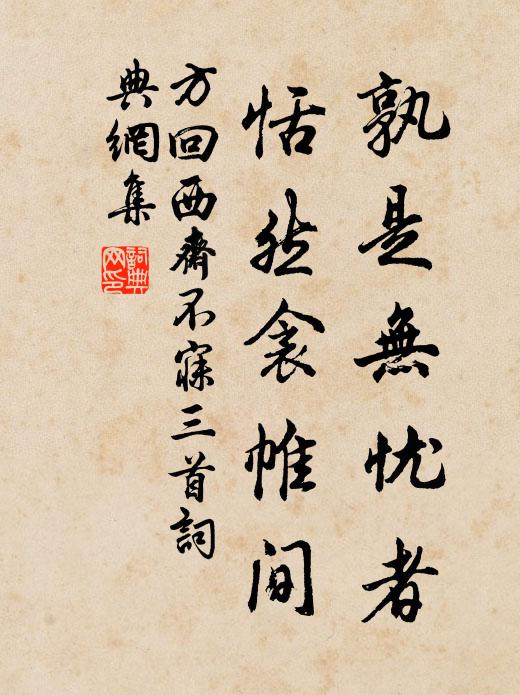 孰是無忧者
恬然衾帷間
方回西齋不寐三首詞
典網集
詞典
网印